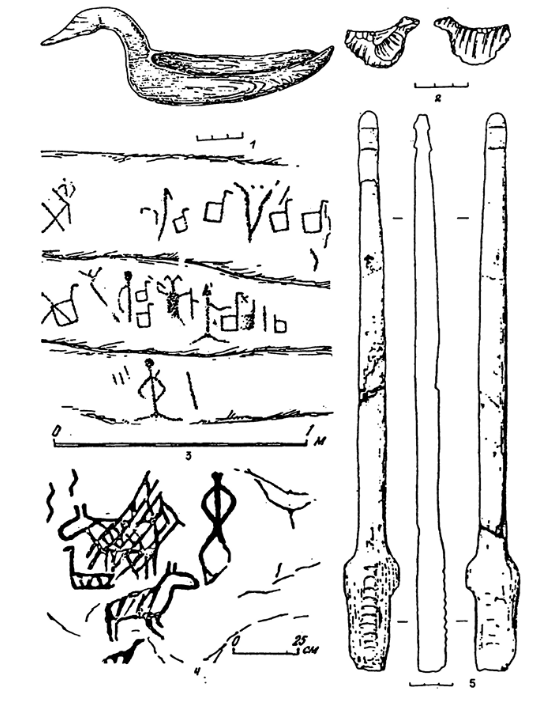 1
2
0 1
М
3
0 25
СМ
4
5